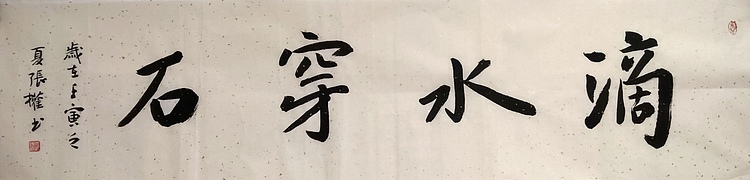 滴水穿石
歲在壬寅之
夏張權书